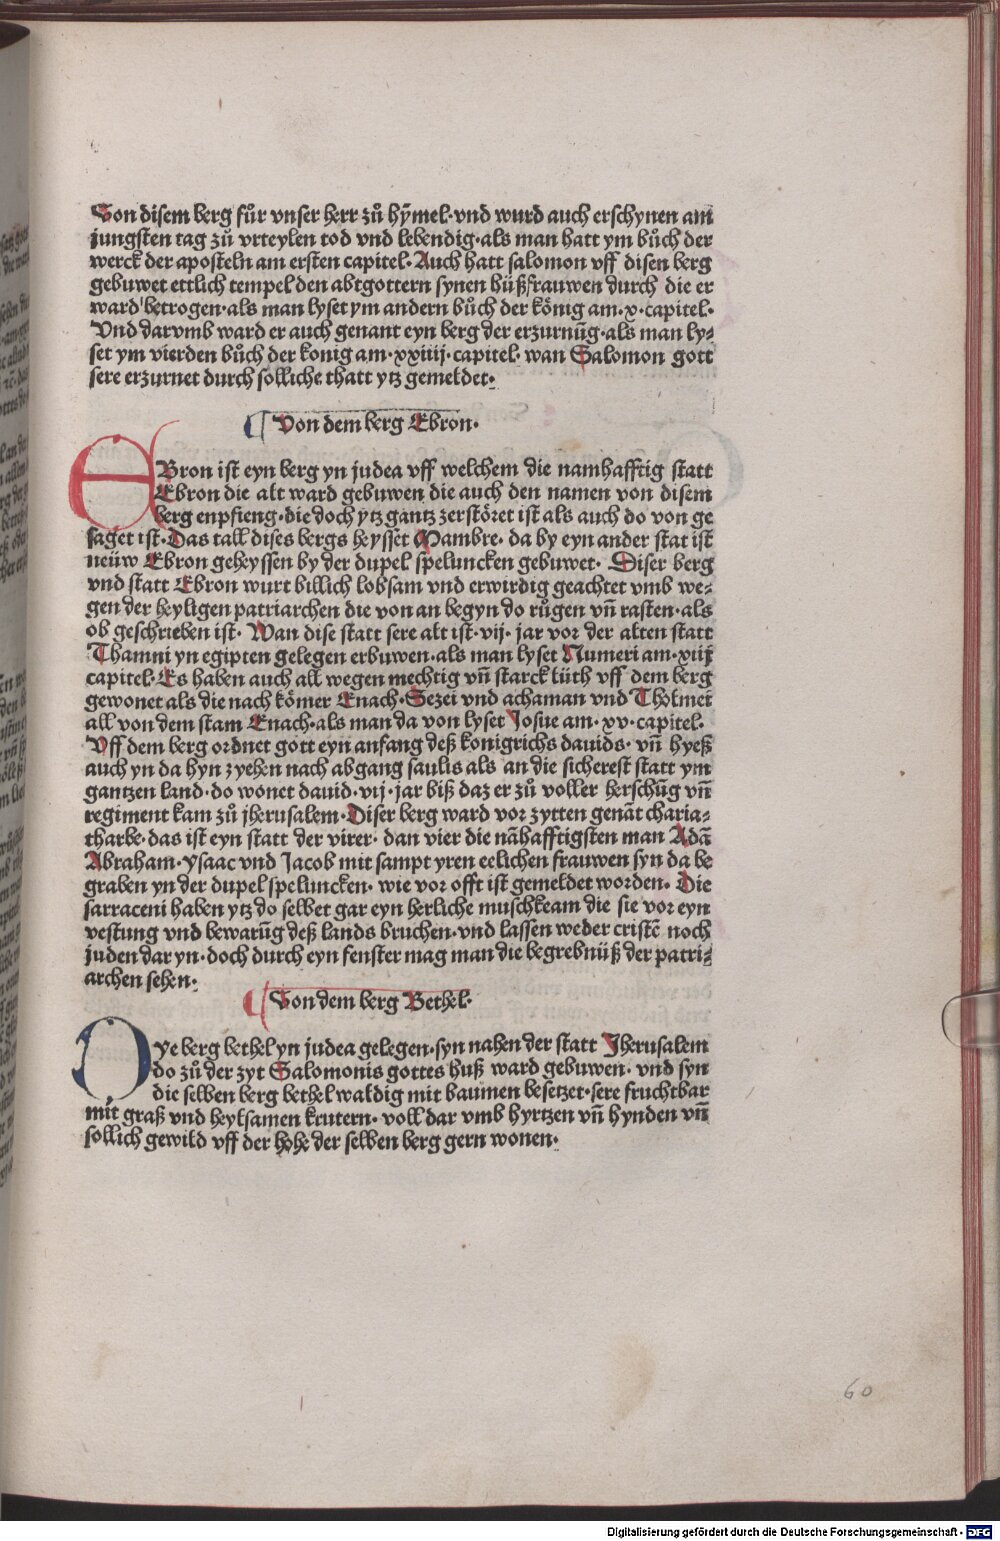 Von disem berg fůr vnser herr zů hȳmel·vnd wurd auch erschynen am
jungsten tag zů vrteylen tod vnd lebendig·als man hatt ym bůch der
werck der aposteln am ersten capitel·Auch hatt salomon vff disen berg
gebuwet ettlich tempel den abtgottern synen büßfrauwen durch die er
ward betrogen·als man lyset ym andern bůch der kőnig am·x·capitel·
Vnd darvmb ward er auch genant eyn berg der erzurnūg·als man ly⸗
set ym vierden bůch der konig am·xxiiij·capitel·wan Salomon gott
sere erzurnet durch solliche thatt ytz gemeldet·
¶ Von dem berg Ebron·
EBron ist eyn berg yn judea vff welchem die namhafftig statt
Ebron die alt ward gebuwen die auch den namen von disem
berg enpfieng·die doch ytz gantz zerstőret ist als auch do von ge
saget ist·Das tall dises bergs heysset Mambre·da by eyn ander stat ist
neüw Ebron geheyssen by der dupel speluncken gebuwet·Diser berg
vnd statt Ebron wurt billich lobsam vnd erwirdig geachtet vmb we⸗
gen der heyligen patriarchen die von an begyn do růgen vn̄ rasten·als
ob geschrieben ist·Wan dise statt sere alt ist·vij·jar vor der alten statt
Thamni yn egipten gelegen erbuwen·als man lyset Numeri am·xiij
capitel·Es haben auch all wegen mechtig vn̄ starck lüth vff dem berg
gewonet als die nach kőmer Enach·Sezei vnd achaman vnd Tholmei
all von dem stam Enach·als man da von lyset Josue am·xv·capitel·
Vff dem berg ordnet gott eyn anfang deß konigrichs dauids·vn̄ hyeß
auch yn da hyn zyehen nach abgang saulis als an die sicherest statt ym
gantzen land·do wonet dauid·vij·jar biß daz er zů voller herschūg vn̄
regiment kam zů jherusalem·Diser berg ward vor zytten genāt charia⸗
tharbe·das ist eyn statt der virer·dan vier die nāhafftigsten man Adā
Abraham·Ysaac vnd Jacob mit sampt yren eelichen frauwen syn da be
graben yn der dupel speluncken·wie vor offt ist gemeldet worden·Die
sarraceni haben ytz do selbet gar eyn herliche muschkeam die sie vor eyn
vestung vnd bewarūg deß lands bruchen·vnd lassen weder cristē noch
juden dar yn·doch durch eyn fenster mag man die begrebnüß der patri⸗
archen sehen·
¶ Von dem berg Bethel·
Dye berg bethel yn judea gelegen·syn nahen der statt Jherusalem
do zů der zyt Salomonis gottes huß ward gebuwen·vnd syn
die selben berg bethel waldig mit baumen besetzet·sere fruchtbar
mit graß vnd heylsamen krutern·voll dar vmb hyrtzen vn̄ hynden vn̄
sollich gewild vff der hohe der selben berg gern wonen·
60
Digitalisierung gefördert durch die Deutsche Forschungsgemeinschaft - DFG